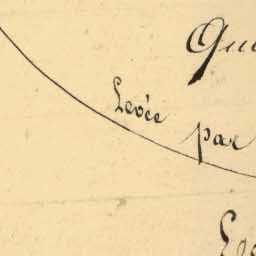 Qu
Levée
par